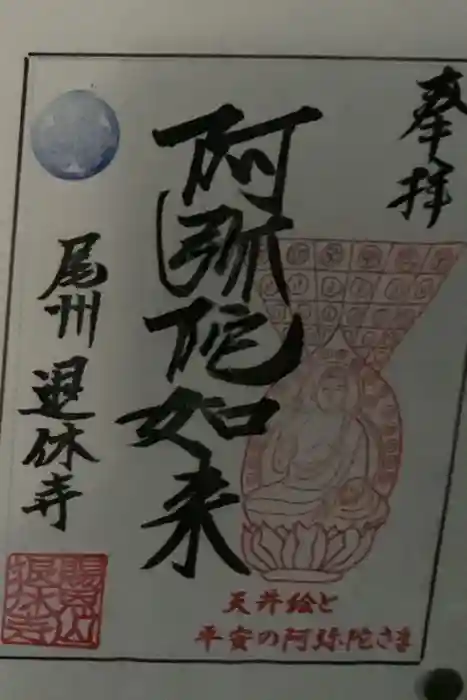 奉拝
阿弥陀如来
尾州 退休寺
天井絵と
平安の阿弥陀さま